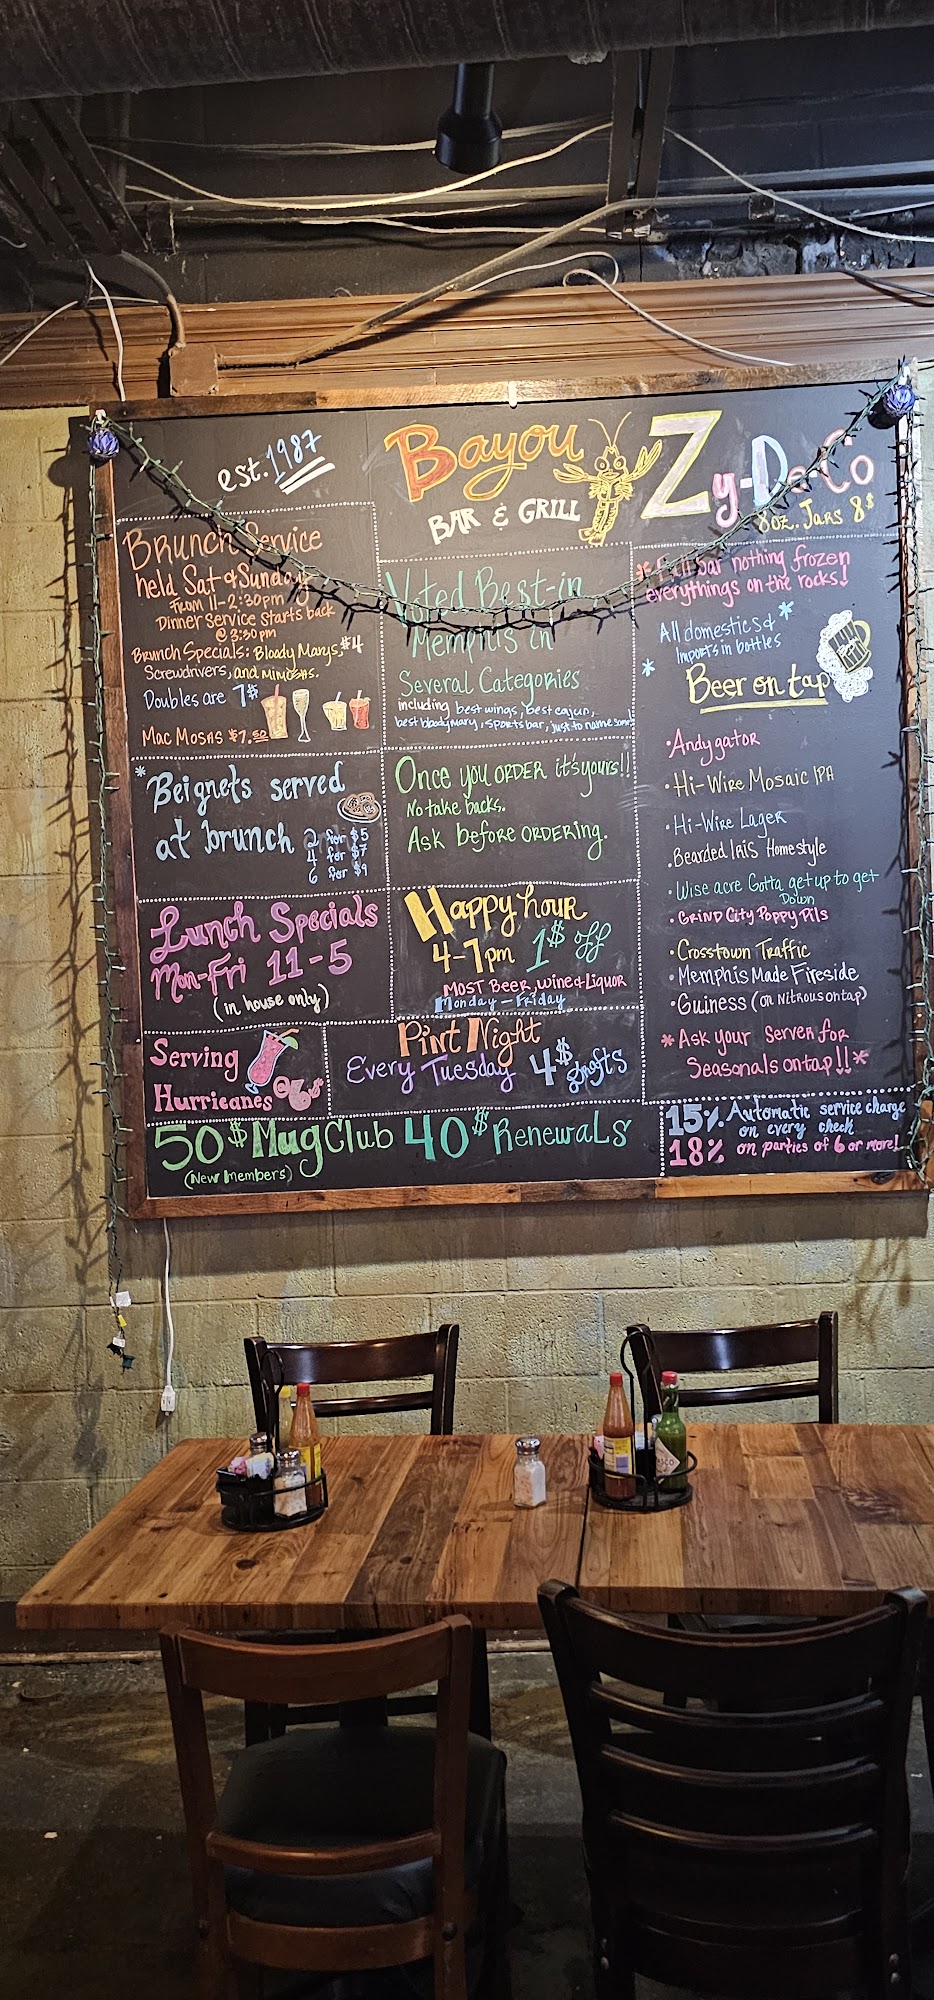 est. 1987
Bayou
BAR & GRILL
Zy-De-Co
8oz. Jars 8$
Brunch Service
held Sat & Sunday
From 11-2:30pm
Dinner Service starts back
@ 3:30pm
Brunch Specials: Bloody Marys, $4
Screwdrivers, and Mimosas.
Doubles are 7$
Mac Mosas $7.50
*Beignets served
at brunch
2 for $5
4 for $7
6 for $9
Lunch Specials
Mon-Fri 11-5
(in house only)
Serving
Hurricanes
Voted Best-in
Memphis in
Several Categories
including best wings, best cajun,
best bloody mary, sports bar, just to name some!
Once you ORDER it's yours!!
No take backs.
Ask before ORDERING.
Happy hour
4-7pm 1$ off
MOST Beer, wine & Liquor
Monday - Friday
Pint Night
Every Tuesday 4$ Drafts
50$ Mug Club 40$ Renewals
(New members)
*Full bar nothing frozen
everythings on the rocks!
All domestics & *
* Imports in bottles
Beer on tap
Beer
•Andygator
•Hi-Wire Mosaic IPA
•Hi-Wire Lager
•Bearded IRIS Homestyle
•Wise acre Gotta get up to get
Down
•GRIND City Poppy Pils
•Crosstown Traffic
•Memphis Made Fireside
•Guiness (on Nitrous on tap)
*Ask your Server for
Seasonals on tap!!*
15% Automatic service charge
on every check
18% on parties of 6 or more!